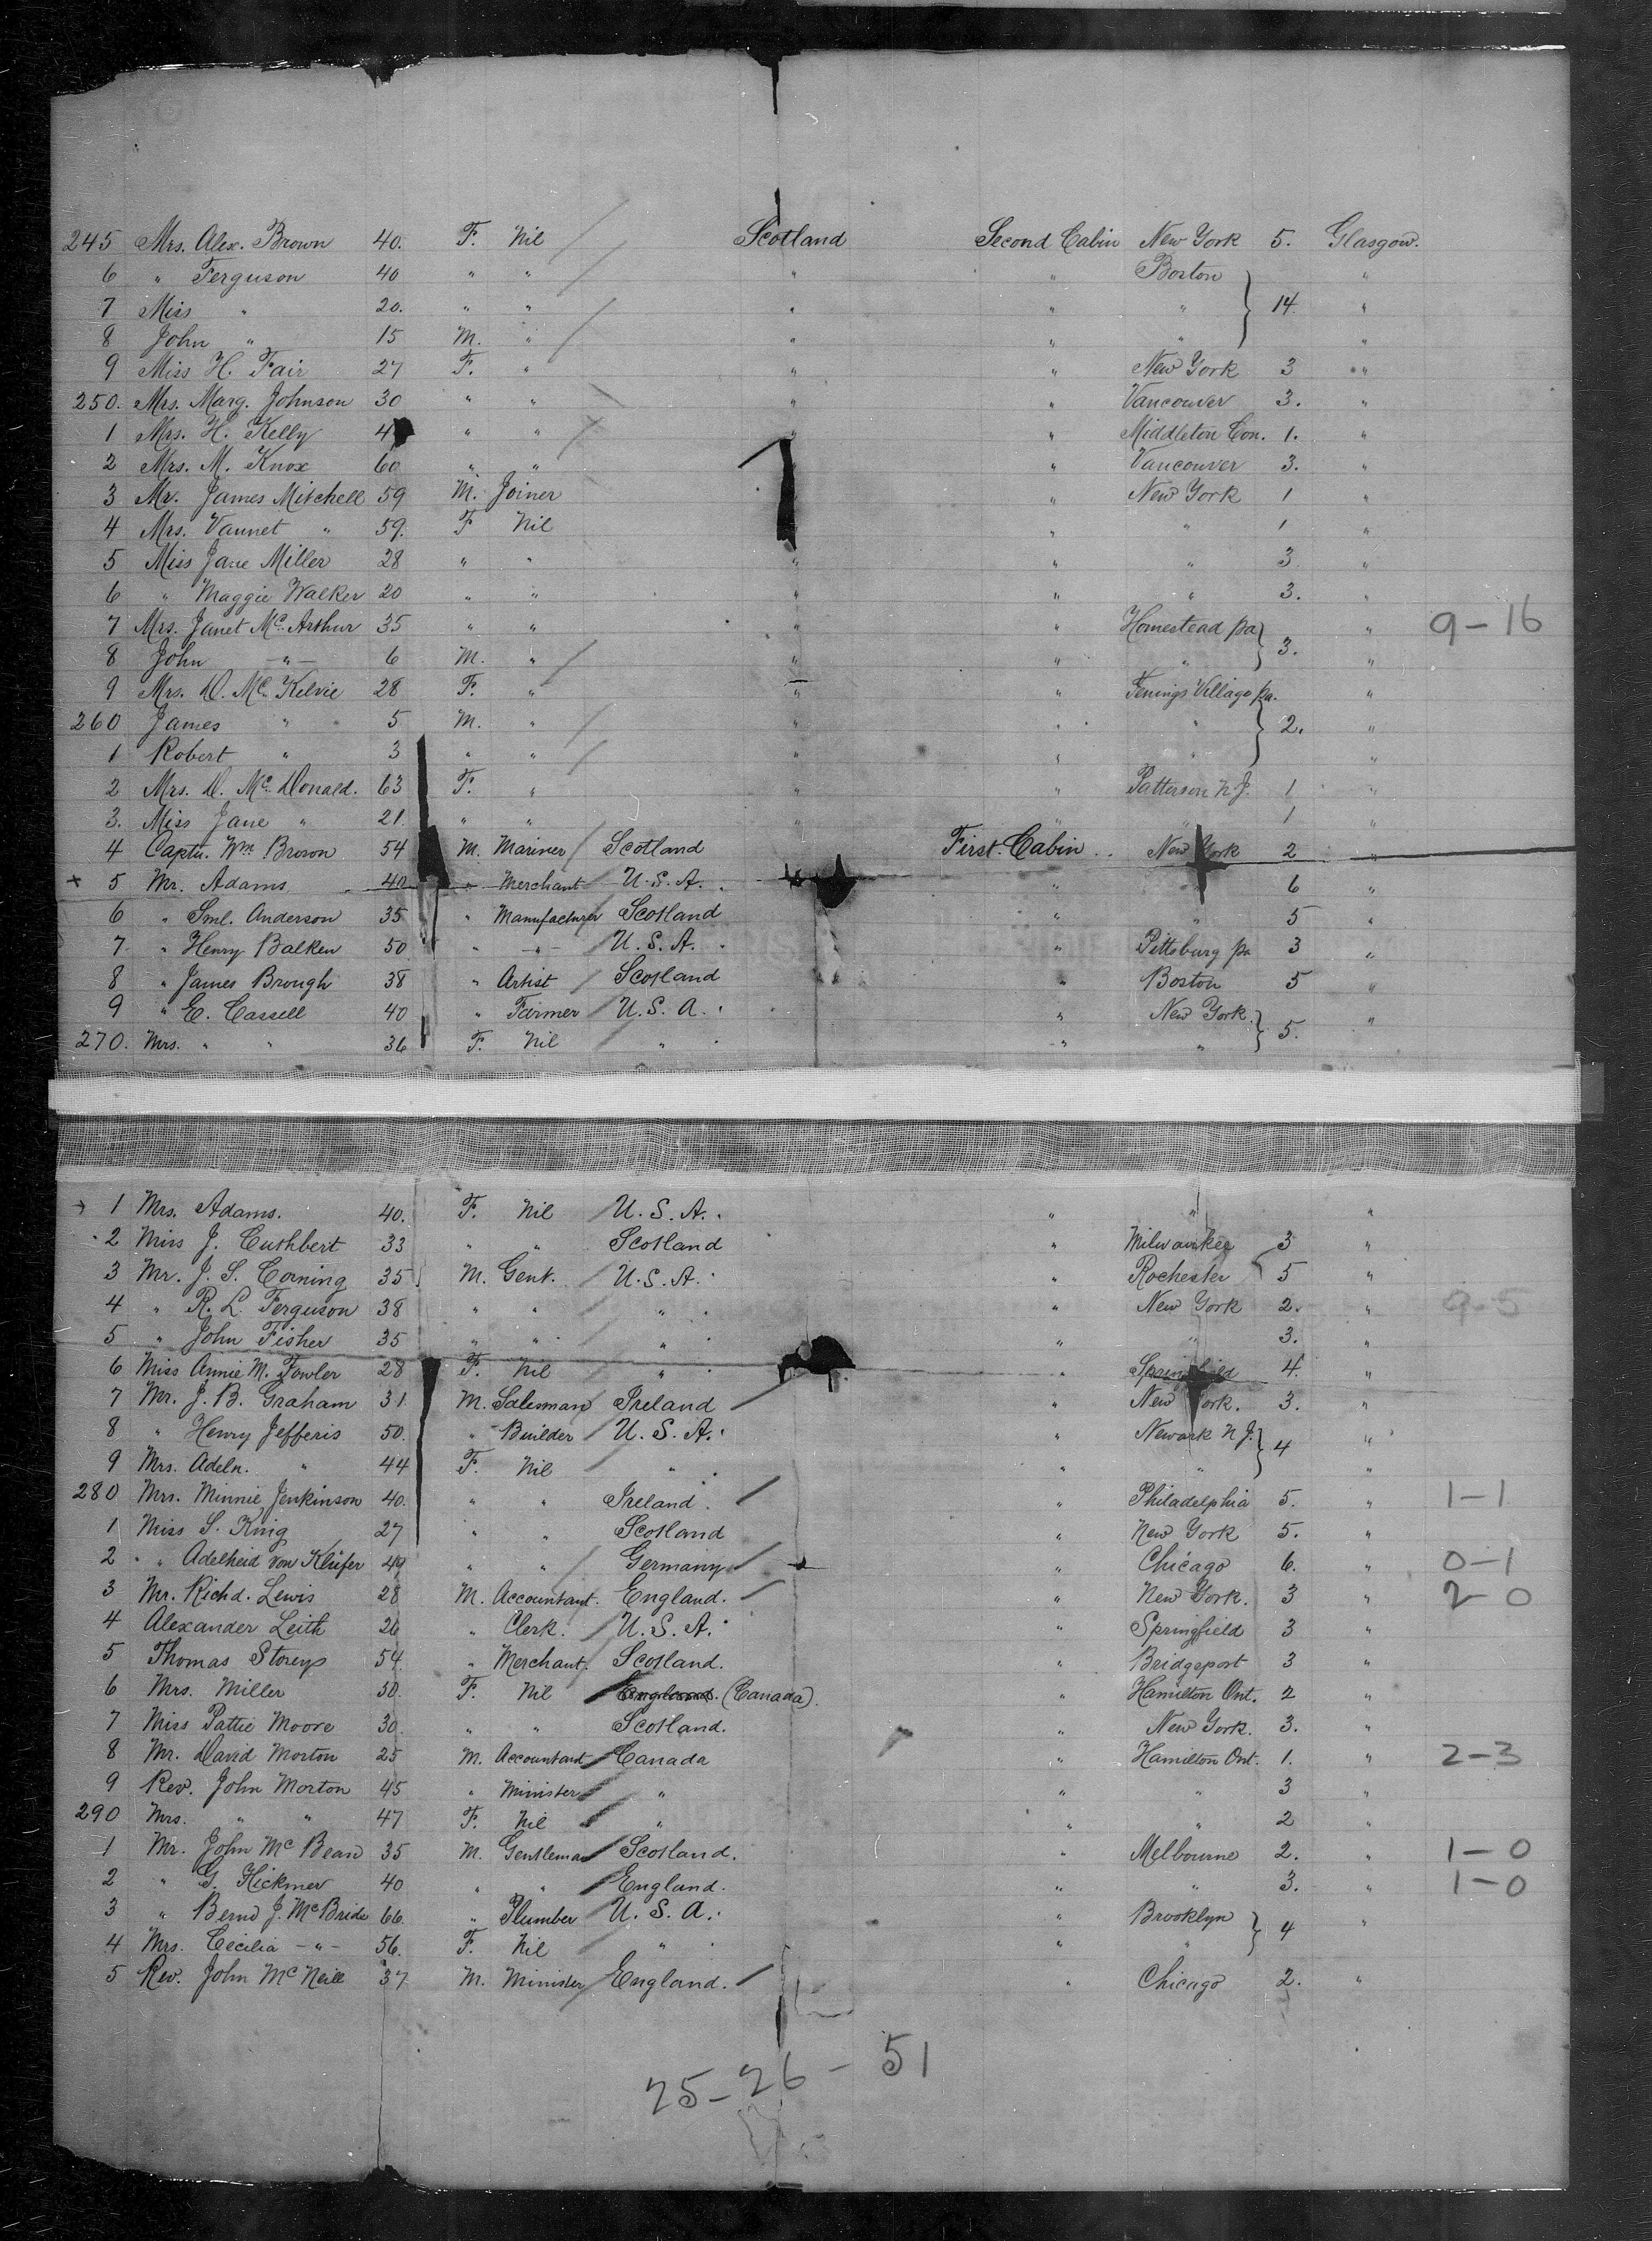 245 Mrs. Alex. Brown 40. F. Nil Scotland Second Cabin New York 5. Glasgow.
6 " Ferguson 40 " " " " Boston "
7 Miss " 20. " " " " " 14. "
8 John " 15 M. " " " " "
9 Miss H. Fair 27 F. " " " New York 3 "
250. Mrs. Marg. Johnson 30 " " " " Vancouver 3. "
1 Mrs. H. Kelly 4 " " " " Middleton Con. 1. "
2 Mrs. M. Knox 60 " " " Vancouver 3. "
3 Mr. James Mitchell 59 M. Joiner " New York 1 "
4 Mrs. Vannet " 59. F Nil " " 1 "
5 Miss Jane Miller 28 " " " " " 3. "
6 " Maggie Walker 20 " " " " " 3. "
7 Mrs. Janet Mc. Arthur 35 " " " " Homestead Pa " 9-16
8 John -"- 6 M. " " " " 3. "
9 Mrs. D. Mc. Kelvie 28 F. " " " Village Pa. "
260 James " 5 M. " " " " 2. "
1 Robert " 3 " " " " " "
2 Mrs. D. Mc. Donald. 63 F. " " " Patterson N.J. 1 "
3. Miss Jane " 21. " " " " " 1 "
4 Captn. Wm. Brown 54 M. Mariner Scotland First Cabin New York 2 "
+ 5 Mr. Adams 40 " Merchant U.S.A. " 6 "
6 " Sml. Anderson 35 " Manufacturer Scotland " " 5 "
7 " Henry Balken 50 " -"- U.S.A. " Pittsburg Pa 3 "
8 " James Brough 38 " Artist Scotland " Boston 5 "
9 " E. Cassell 40 " Farmer U.S.A. " New York "
270. Mrs. " " 36 F. Nil " " " 5.
+ 1 Mrs. Adams. 40. F. Nil U.S.A. " " "
2 Miss J. Cuthbert 33 " " Scotland " Milwaukee 3 "
3 Mr. J. S. Corning 35 M. Gent. U.S.A. " Rochester 5 "
4 " R. L. Ferguson 38 " " " " New York 2. " 9-5
5 " John Fisher 35 " " " " " 3. "
6 Miss Annie M. Fowler 28 F. Nil " " Springfield 4. "
7 Mr. J. B. Graham 31. M. Salesman Ireland " New York. 3. "
8 " Henry Jefferis 50. " Builder U.S.A. " Newark N.J. 4 "
9 Mrs. Adeln. " 44 F. Nil " " " "
280 Mrs. Minnie Jenkinson 40. " " Ireland. " Philadelphia 5. " 1-1
1 Miss S. King 27 " " Scotland " New York 5. "
2 " Adelheid von 49 " " Germany " Chicago 6. " 0-1
3 Mr. Richd. Lewis 28 M. Accountant. England. " New York. 3 " 2-0
4 Alexander Leith 26 " Clerk. U.S.A. " Springfield 3 "
5 Thomas Storey 54 " Merchant. Scotland. " Bridgeport 3 "
6 Mrs. Miller 50. F. Nil England. (Canada). " Hamilton Ont. 2 "
7 Miss Pattie Moore 30. " " Scotland. " New York. 3. "
8 Mr. David Morton 25 M. Accountant Canada " Hamilton Ont. 1. " 2-3
9 Rev. John Morton 45 " Minister " " " 3 "
290 Mrs. " " 47 F. Nil " " " 2 "
1 Mr. John Mc Bean 35 M. Gentleman Scotland. " Melbourne 2. " 1-0
2 " G. Hickmer 40 " " England. " " 3. " 1-0
3 " Bernd J. McBride 66. " Plumber U.S.A. " Brooklyn 4 "
4 Mrs. Cecilia -"- 56. F. Nil " " "
5 Rev. John Mc Neill 37 M. Minister England. " Chicago 2. "
25-26-51